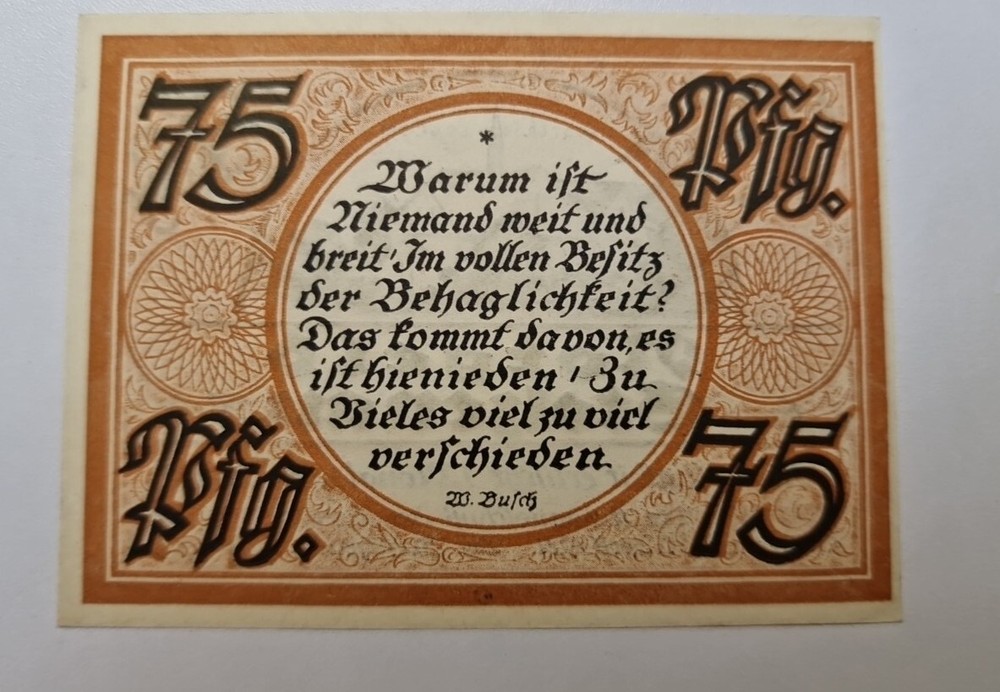 75 Pfg.
*
Warum ist
Niemand weit und
breit/Im vollen Besitz
der Behaglichkeit?
Das kommt davon, es
ist hienieden / Zu
Vieles viel zu viel
verschieden.
W. Busch
Pfg. 75